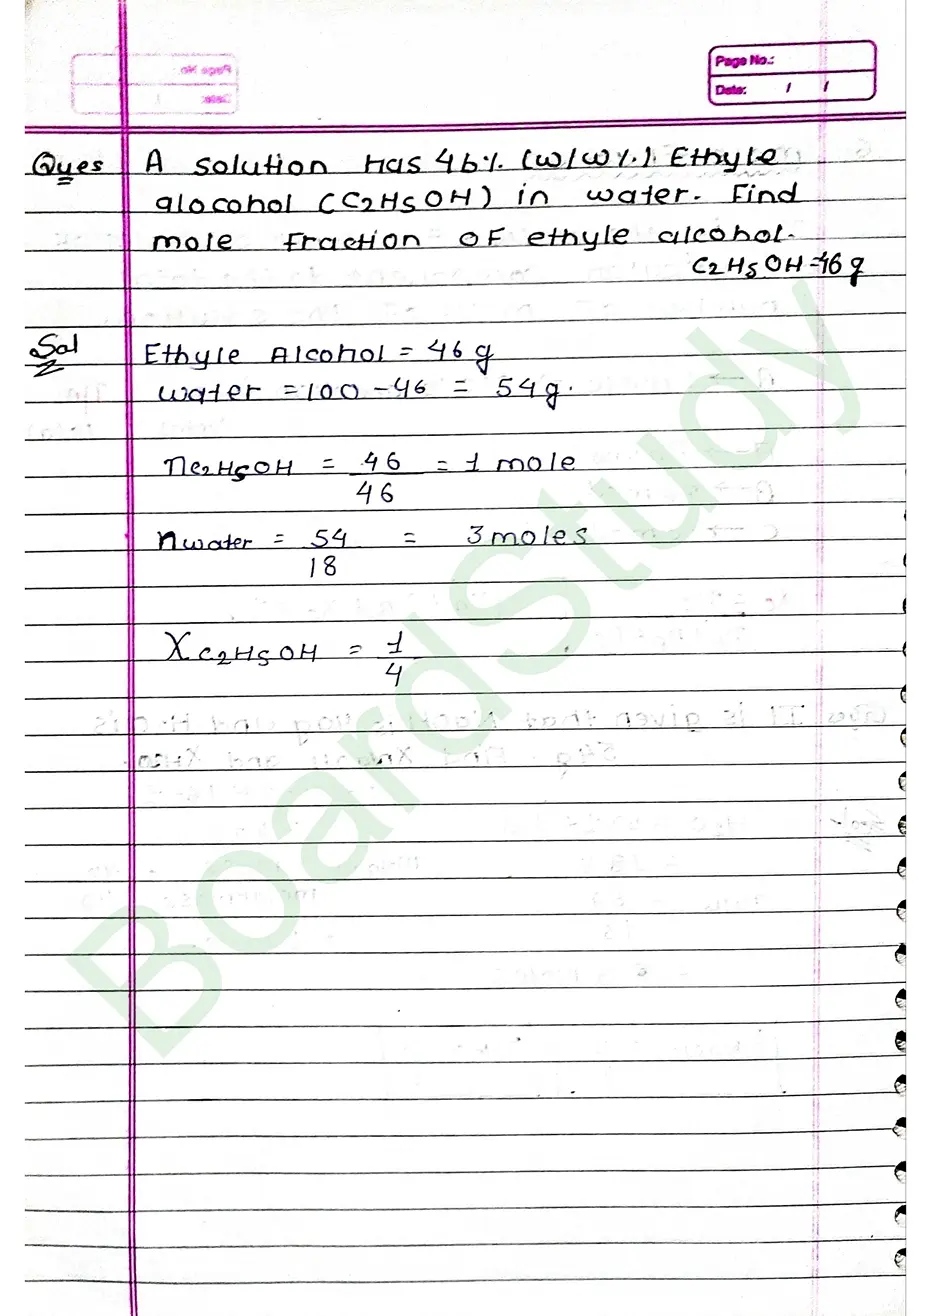 Page No.:
Date: / /
Ques A solution has 46% (w/w%). Ethyle
alocohol (C2H5OH) in water. Find
mole fraction of ethyle alcohol.
C2H5OH=46g
Sol Ethyle Alcohol = 46 g
water = 100 - 46 = 54g.
nc2H5OH = 46 = 1 mole
46
nwater = 54 = 3 moles
18
Xc2H5OH = 1
4
BoardStudy